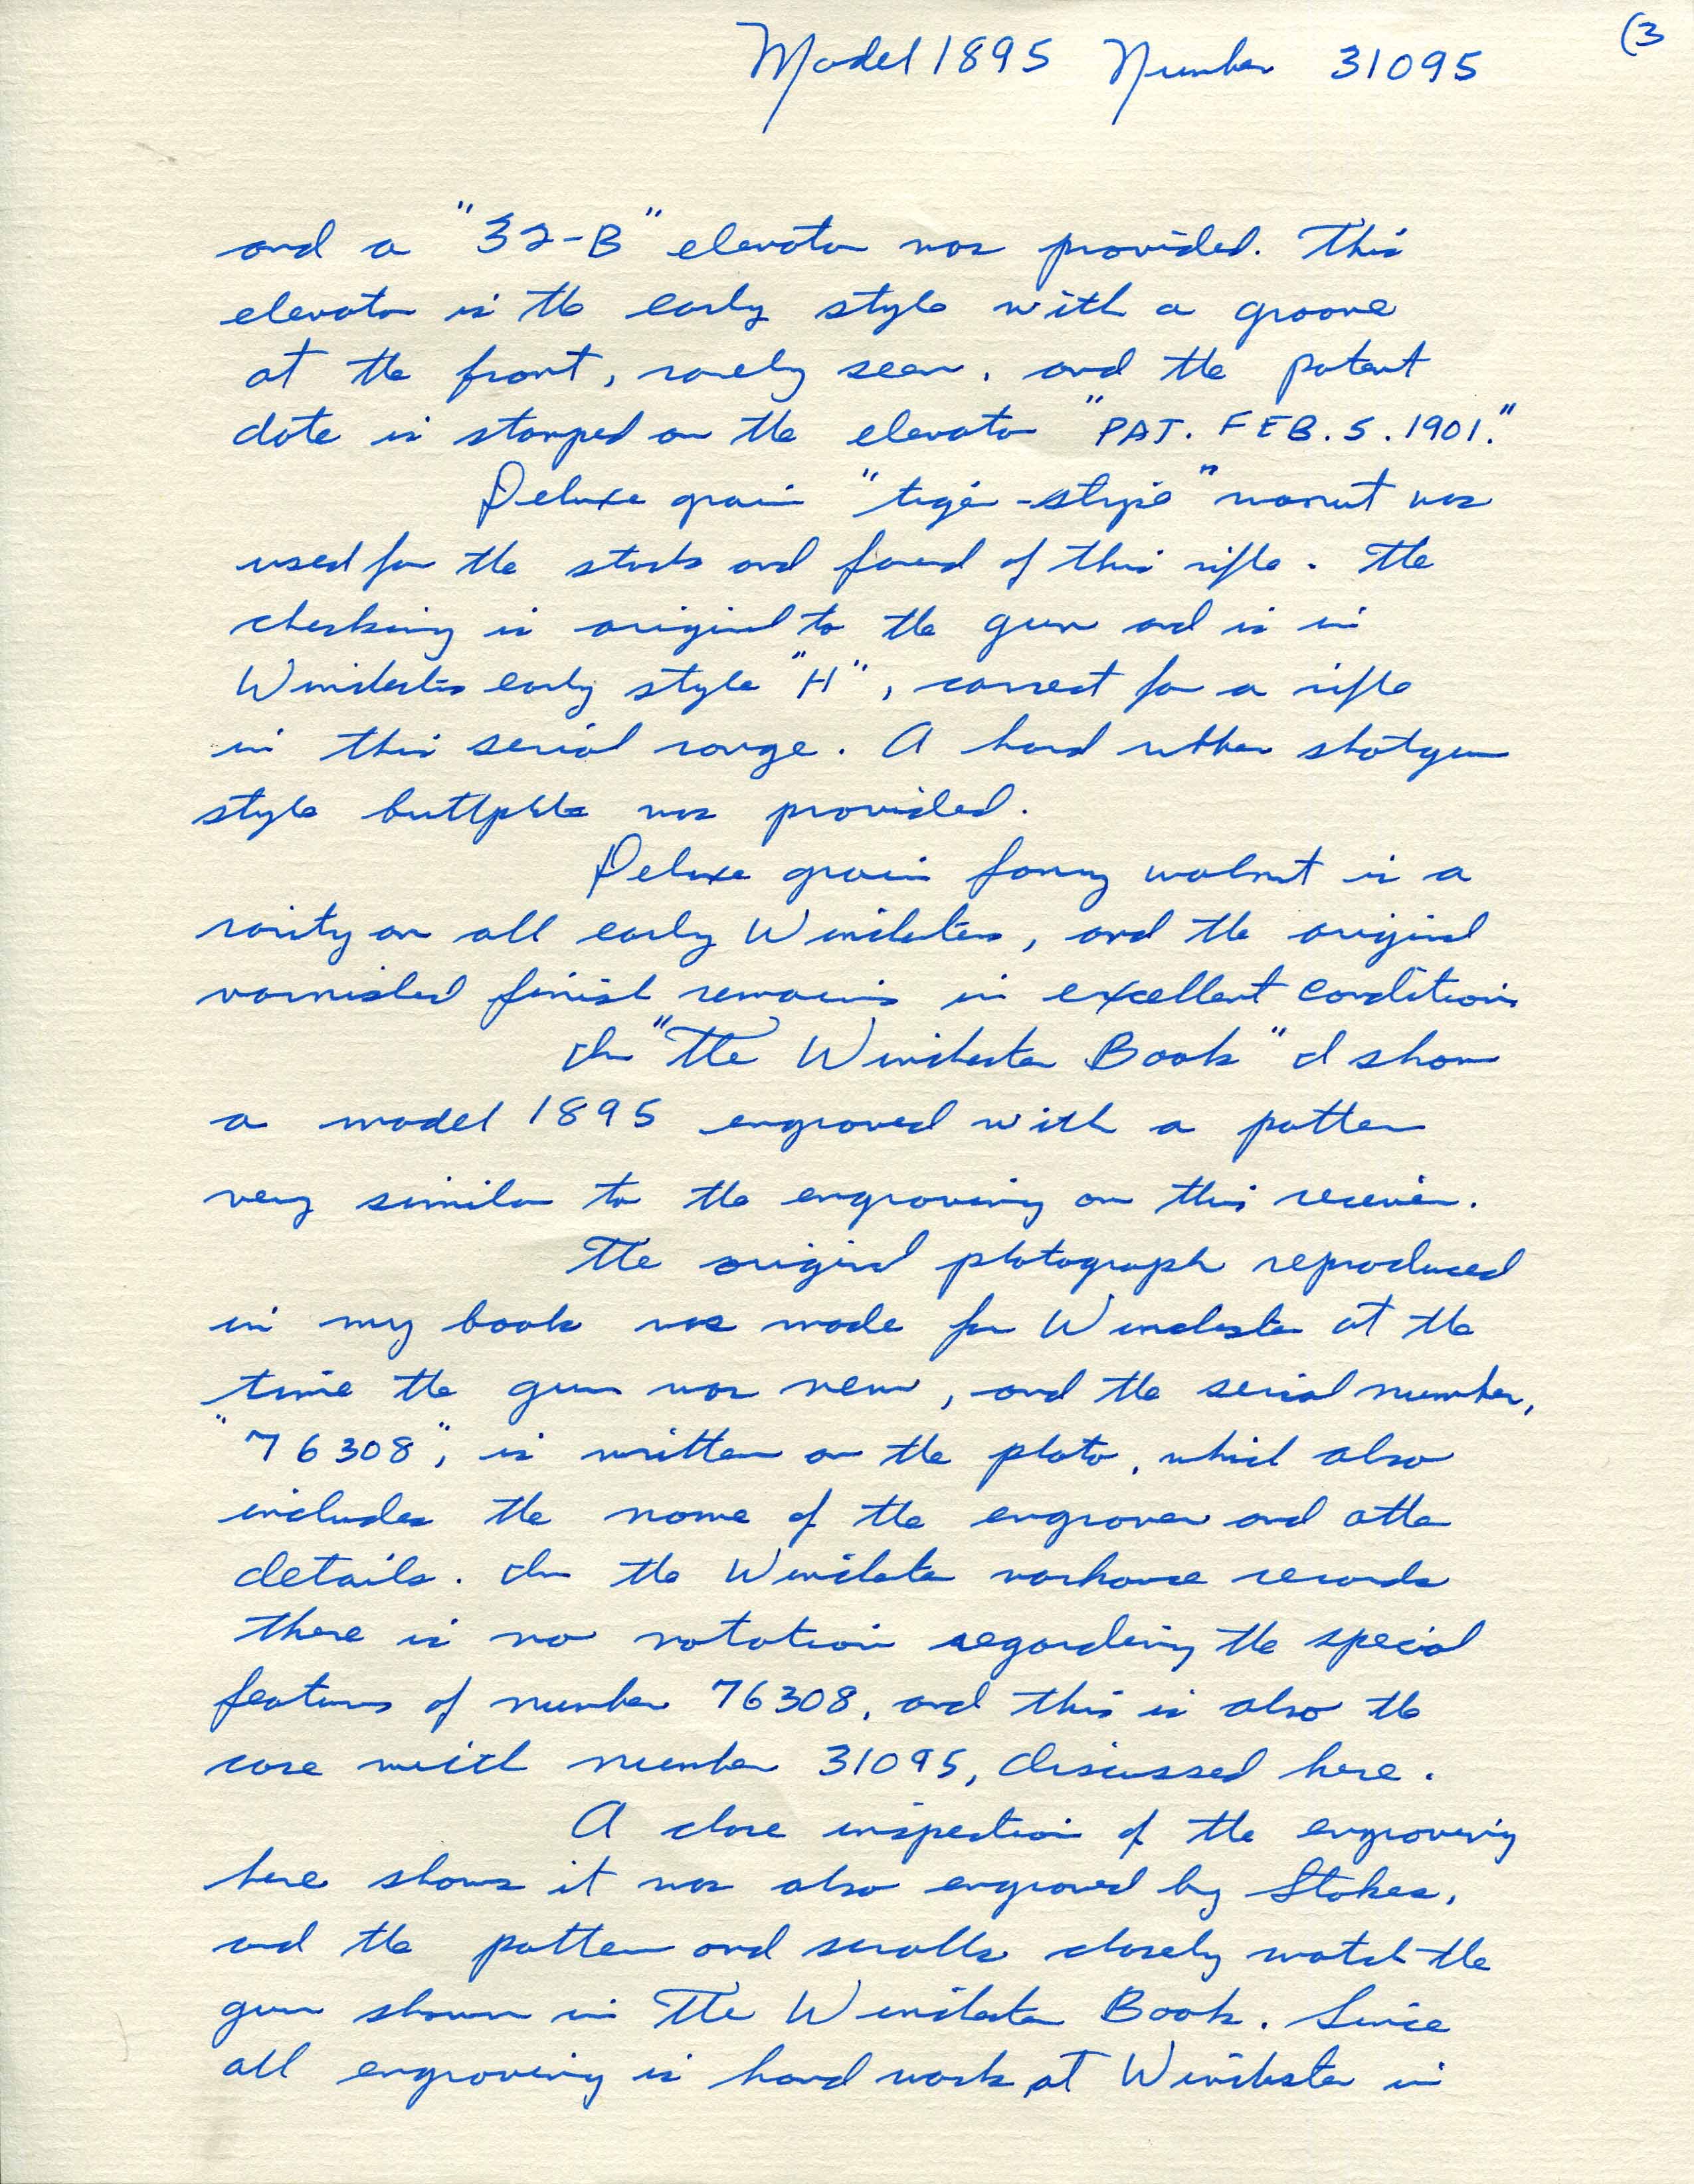 (3
Model 1895 Number 31095
and a "32-B" elevator was provided. This
elevator is the early style with a groove
at the front, rarely seen, and the patent
date is stamped on the elevator "PAT. FEB. 5. 1901."
Deluxe grain "tiger-stripe" walnut was
used for the stocks and forend of this rifle. The
checking is original to the gun and is in
Winchesters early style "H", correct for a rifle
in this serial range. A hard rubber shotgun
style buttplate was provided.
Deluxe grain fancy walnut is a
rarity on all early Winchesters, and the original
varnished finish remains in excellent condition
In "The Winchester Book" I show
a model 1895 engraved with a pattern
very similar to the engraving on this receiver.
The original photograph reproduced
in my book was made for Winchester at the
time the gun was new, and the serial number,
"76308", is written on the photo, which also
includes the name of the engraver and other
details. In the Winchester warhouse records
there is no notation regarding the special
features of number 76308, and this is also the
case with number 31095, discussed here.
A close inspection of the engraving
here shows it was also engraved by Stokes,
and the pattern and scrolls closely match the
gun shown in The Winchester Book. Since
all engraving is hand work at Winchester in